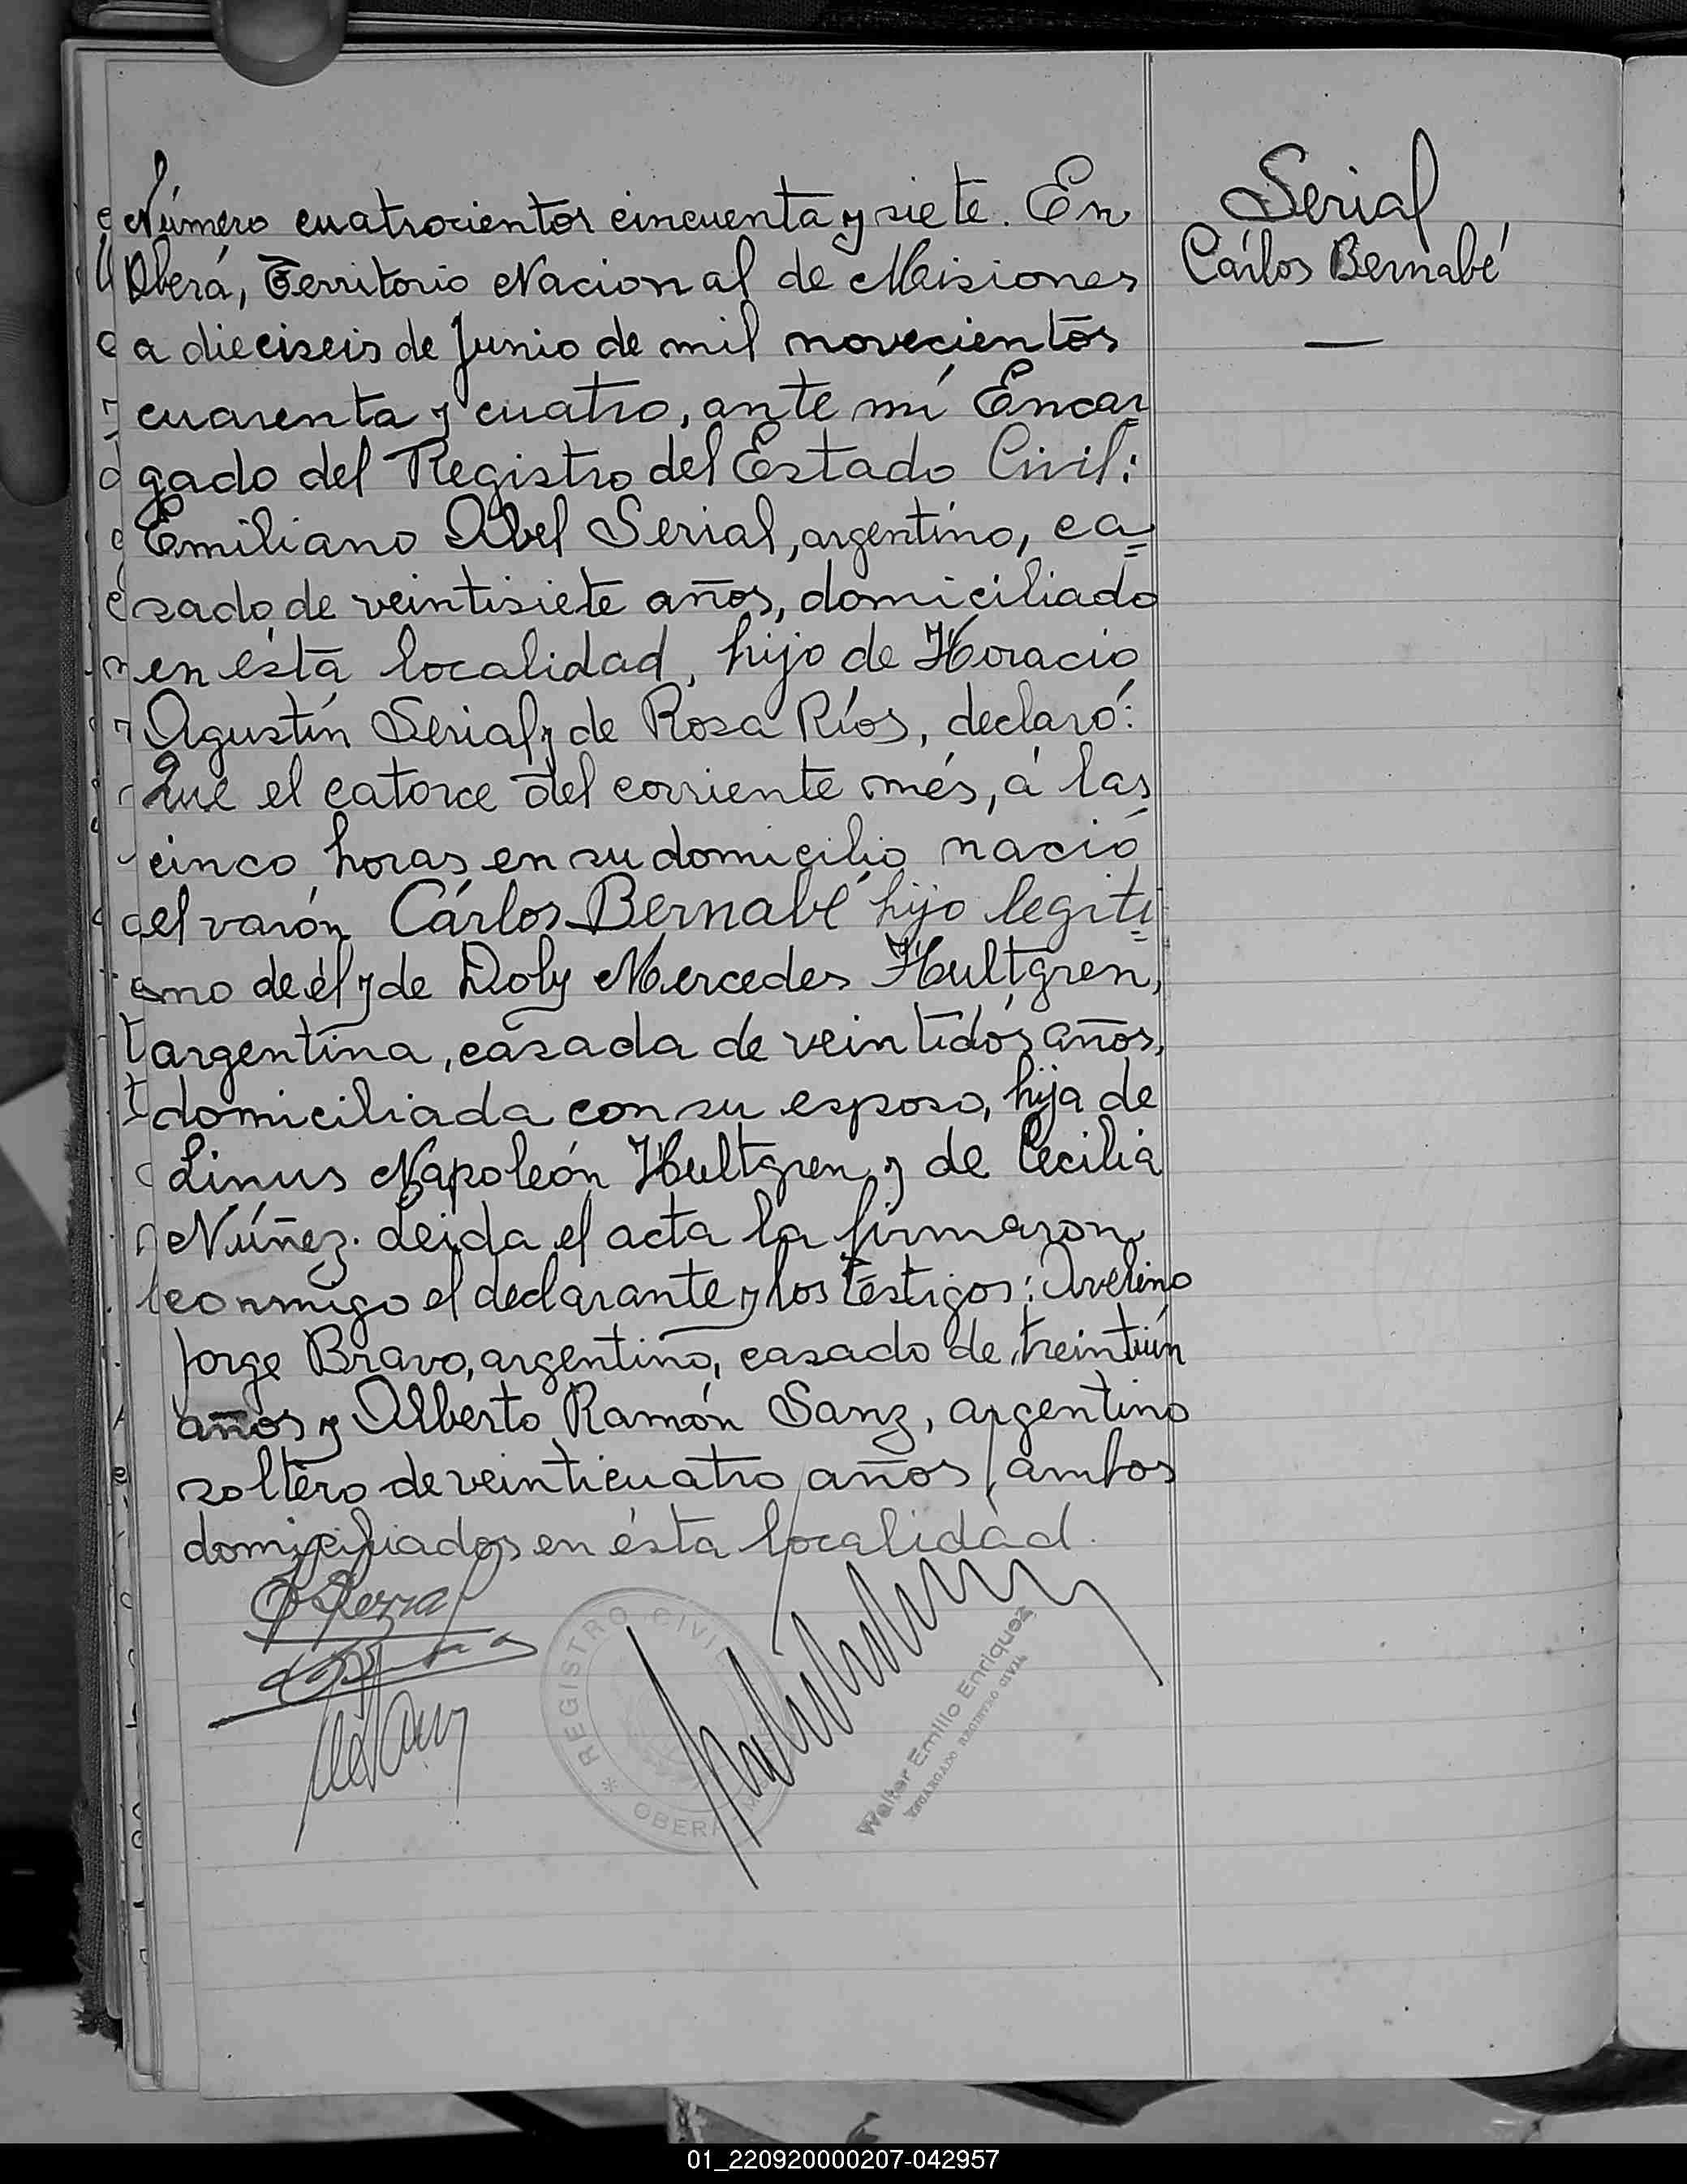 Serial
Cárlos Bernabé
Número cuatrocientos cincuenta y siete. En
Oberá, Territorio Nacional de Misiones
a dieciseis de Junio de mil novecientos
cuarenta y cuatro, ante mí Encar
gado del Registro del Estado Civil:
Emiliano Abel Serial, argentino, ca=
sado, de veintisiete años, domiciliado
en ésta localidad, hijo de Horacio
Agustín Serial y de Rosa Ríos, declaró:
Que el catorce del corriente més, á las
cinco horas, en su domicilio nació
el varón Cárlos Bernabé hijo legiti=
mo de él y de Doly Mercedes Hultgren,
argentina, casada de veintidós años,
domiciliada con su esposo, hija de
Linus Napoleón Hultgren y de Cecilia
Núñez. Leida el acta la firmaron
conmigo el declarante y los testigos: Avelino
Jorge Bravo, argentino, casado de treintiún
años y Alberto Ramón Sanz, argentino
soltero de veinticuatro años, ambos
domiciliados en ésta localidad.
REGISTRO CIVIL
OBERÁ
Walter Emilio Enriquez
ENCARGADO REGISTRO CIVIL
01_220920000207-042957